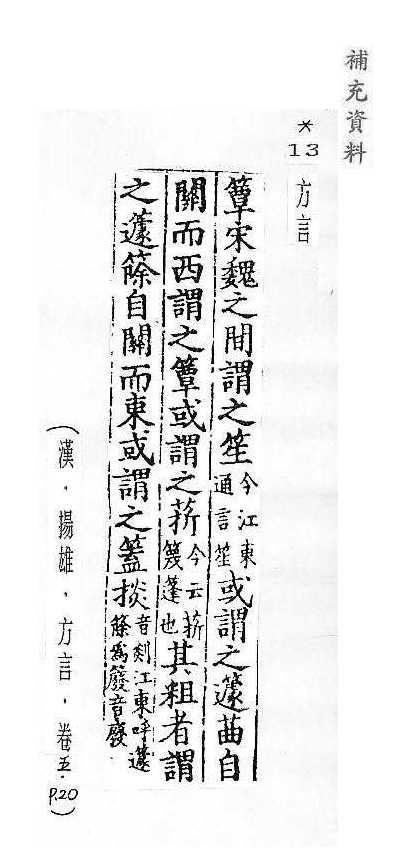 補充資料
*
13
方言
簟宋魏之間謂之笙今江東通言笙或謂之籧曲自
關而西謂之簟或謂之䇽今云䇽篾篷也其粗者謂
之籧篨自關而東或謂之篕掞音剡江東呼籧篨爲䉬音廢
(漢·揚雄·方言·卷五·P.20)